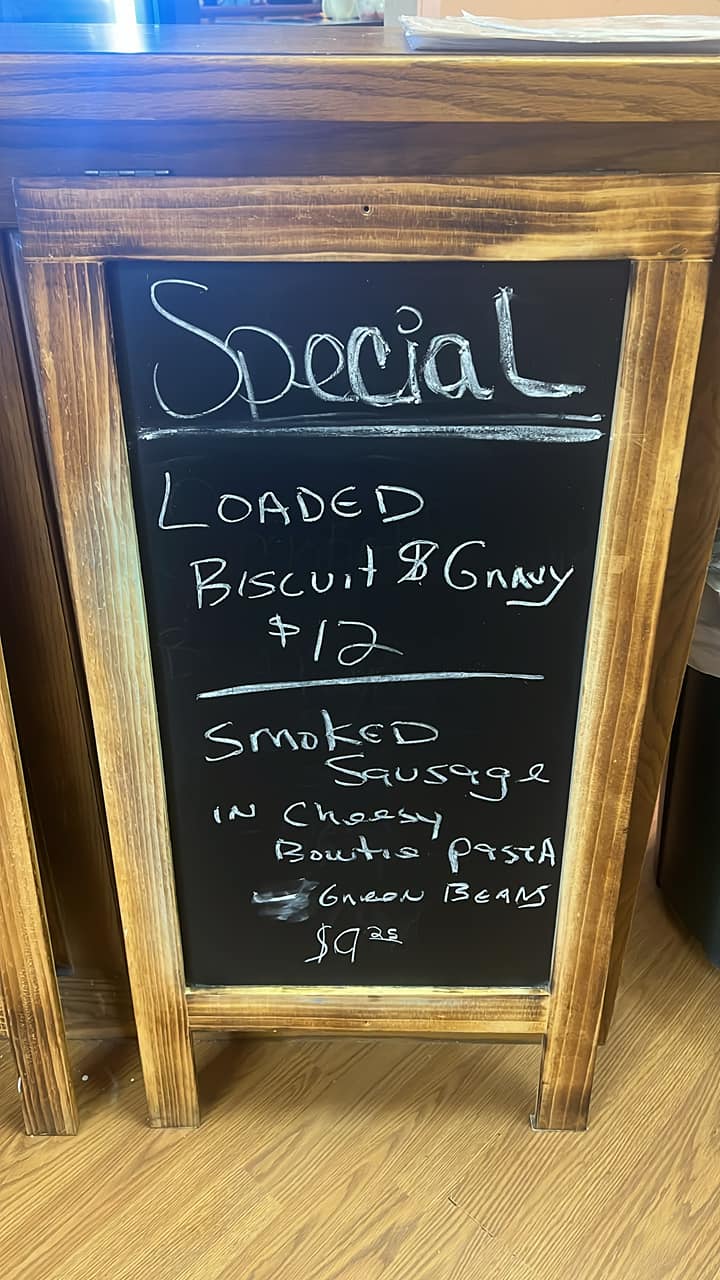 Special
LOADED
BISCUIT & GRAVY
$12
SMOKED
Sausage
IN Cheesy
Bowtie PASTA
GREEN BEANS
$9.25